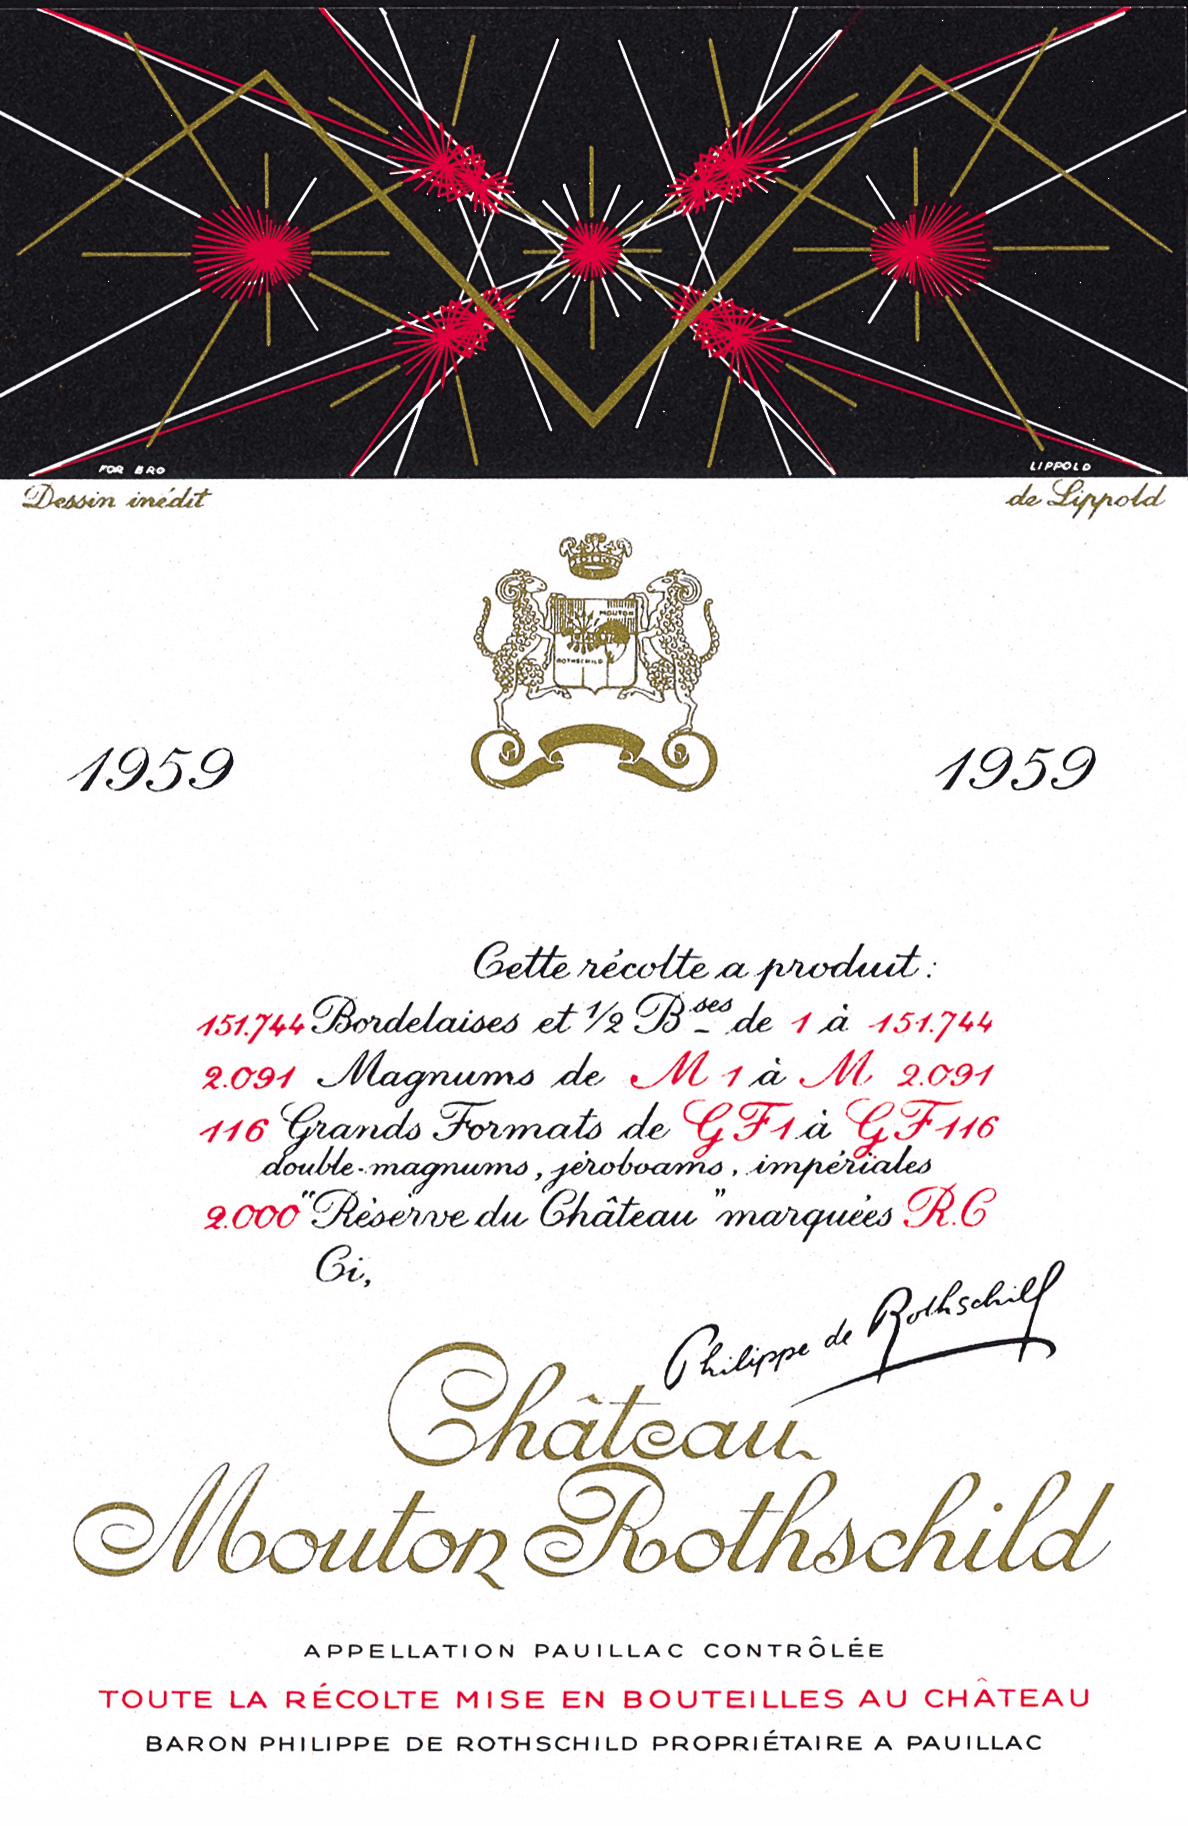 FOR BRO
LIPPOLD
Dessin inédit
de Lippold
MOUTON
ROTHSCHILD
1959
1959
Cette récolte a produit :
151.744 Bordelaises et 1/2 Bses de 1 à 151.744
2.091 Magnums de M 1 à M 2.091
116 Grands Formats de GF 1 à GF 116
double-magnums, jéroboams, impériales
2.000 "Réserve du Château" marquées R.C
Ci,
Philippe de Rothschild
Château
Mouton Rothschild
APPELLATION PAUILLAC CONTRÔLÉE
TOUTE LA RÉCOLTE MISE EN BOUTEILLES AU CHÂTEAU
BARON PHILIPPE DE ROTHSCHILD PROPRIÉTAIRE A PAUILLAC